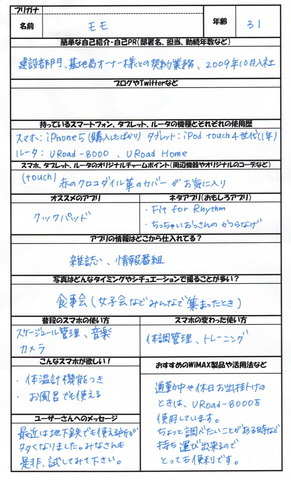 フリガナ
名前 モモ 年齢 31
簡単な自己紹介・自己PR(部署名、担当、勤続年数など)
建設部門、基地局オーナー様との契約業務、2009年10月入社
ブログやTwitterなど
持っているスマートフォン、タブレット、ルータの機種とそれぞれの使用歴
スマホ:iPhone5(購入したばかり) タブレット:iPod touch4世代(1年)
ルータ:URoad-8000、URoad Home
スマホ、タブレット、ルータのオリジナルチャームポイント(周辺機器やオリジナルのコーデなど)
(touch) 赤のクロコダイル革のカバーがお気に入り
オススメのアプリ ネタアプリ(おもしろアプリ)
クックパッド
・Fit for Rhythm
・ちっちゃいおっさんの
アプリの情報はどこから仕入れてる?
雑誌、情報番組
写真はどんなタイミングやシチュエーションで撮ることが多い?
食事会(女子会などみんなで集まったとき)
普段のスマホの使い方 スマホの変わった使い方
スケジュール管理、音楽
カメラ
体調管理、トレーニング
こんなスマホが欲しい! おすすめのWiMAX製品や活用法など
・体温計機能つき
・お風呂でも使える
通勤中や休日お出掛けの
ときは、URoad-8000を
使用しています。
ちょっと調べたいことがある時など
持ち運び出来るので
とっても便利です。
ユーザーさんへのメッセージ
最近は地下鉄でも使える所が
多くなりました。みなさんも
是非、試してみて下さい。